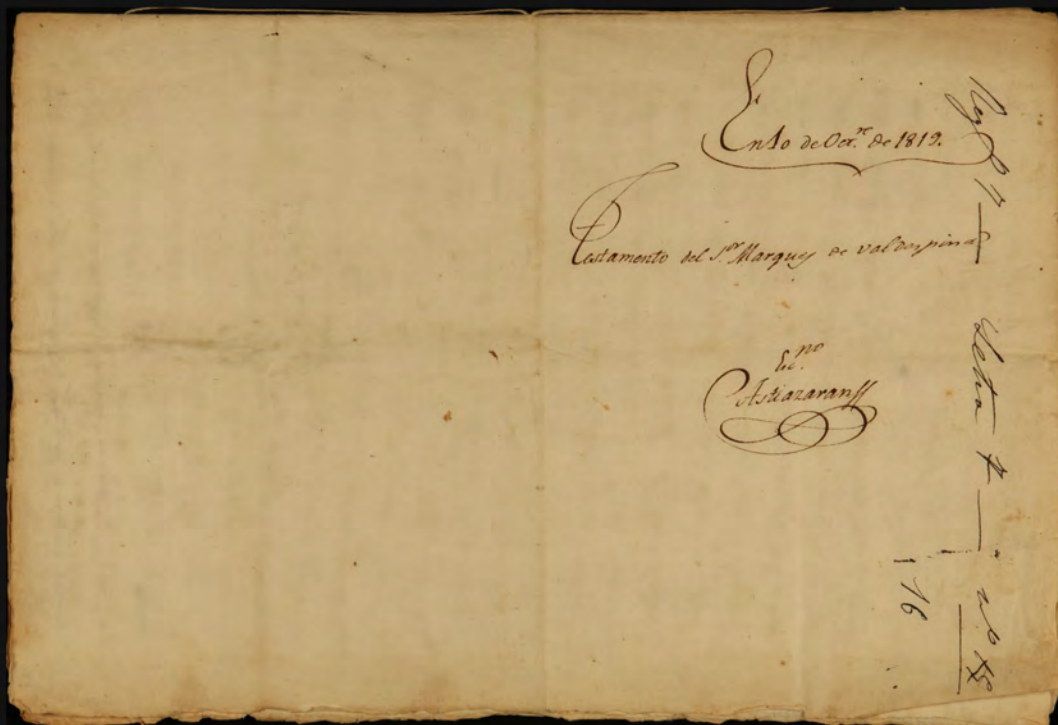 En 10 de Oct.re de 1819.
Testamento del S.or Marques de Valdespina
Es.no
Astiazaran
Letra T
n.o
16